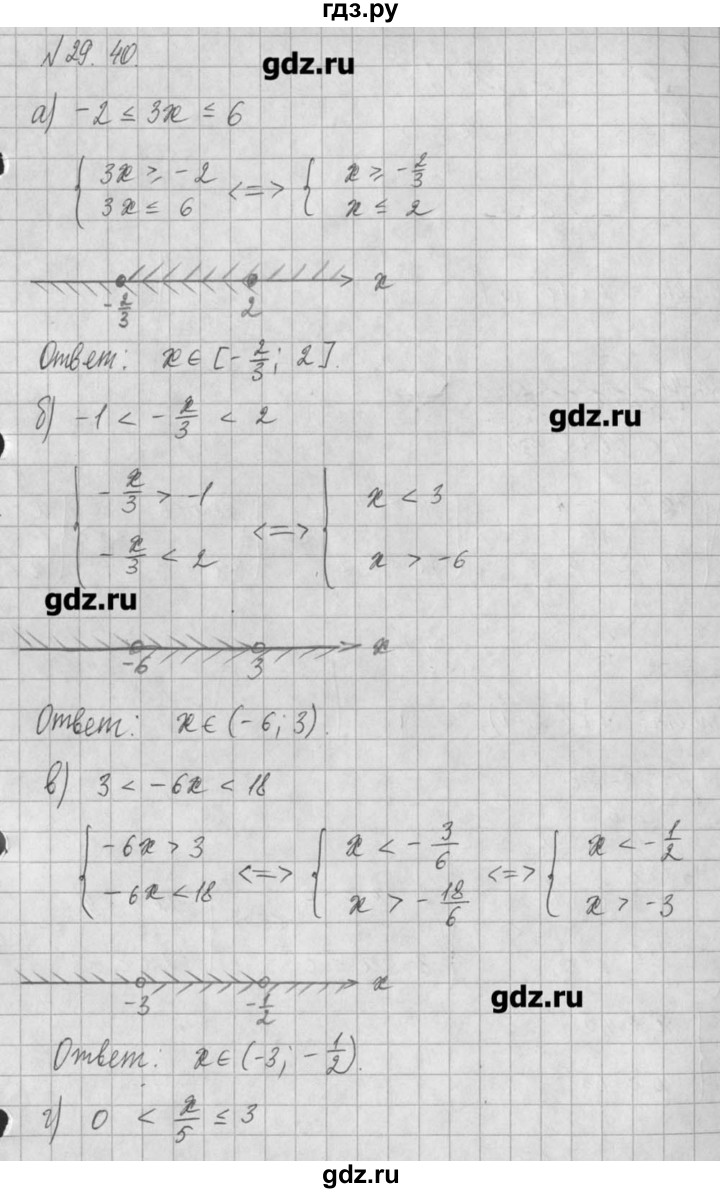 гдз.ру
№29.40
gdz.ru
а) -2 ≤ 3x ≤ 6
{ 3x ≥ -2 <=> { x ≥ -2/3
3x ≤ 6 x ≤ 2
-2/3 2 x
Ответ: x ∈ [-2/3; 2].
б) -1 < -x/3 < 2
gdz.ru
{ -x/3 > -1 <=> { x < 3
-x/3 < 2 x > -6
gdz.ru
-6 3 x
Ответ: x ∈ (-6; 3).
в) 3 < -6x < 18
{ -6x > 3 <=> { x < -3/6 <=> { x < -1/2
-6x < 18 x > -18/6 x > -3
-3 -1/2 x
gdz.ru
Ответ: x ∈ (-3; -1/2).
г) 0 < x/5 ≤ 3
gdz.ru